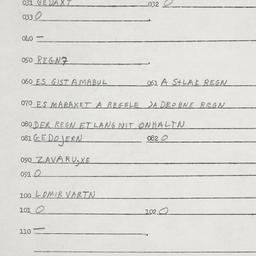 031 GEDAXT 032 0
033 0
040 —
050 REGN?
060 ES GIST AMABUL 061 A STLAK REGN
070 ES MARAKET A REGELE
080 DER REGN ET LANG NIT ONHALTN
081 GEDOJERN 082 0
090 ZAVARUXE
091 0
100 LOMIR VARTN
101 0 102 0
110 —